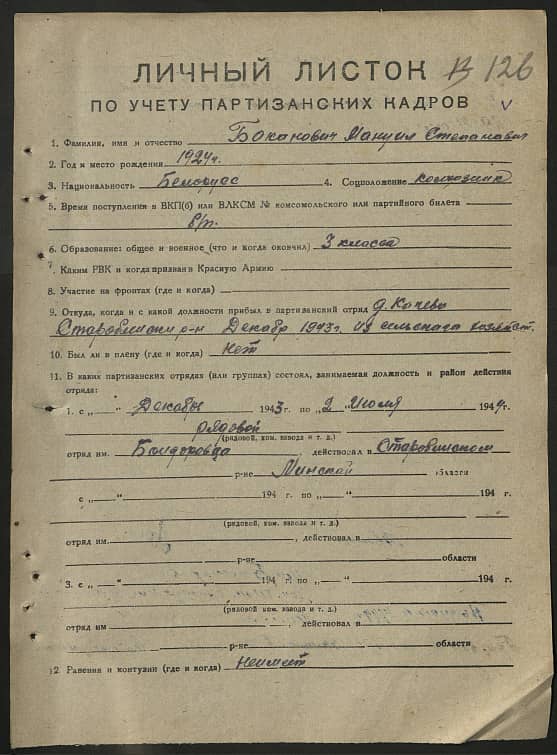 ЛИЧНЫЙ ЛИСТОК В 126
ПО УЧЕТУ ПАРТИЗАНСКИХ КАДРОВ V
1. Фамилия, имя и отчество Боканович Мануил Степанавич
2. Год и место рождения 1924г.
3. Национальность Белорус 4. Соцположение колхозник
5. Время поступления в ВКП(б) или ВЛКСМ № комсомольского или партийного билета
б/п.
6. Образование: общее и военное (что и когда окончил) 3 класса
7. Каким РВК и когда призван в Красную Армию
8. Участие на фронтах (где и когда)
9. Откуда, когда и с какой должности прибыл в партизанский отряд д.
р-н Декабр 1943г. из сельскага
10. Был ли в плену (где и когда) нет
11. В каких партизанских отрядах (или группах) состоял, занимаемая должность и район действия
отряда:
1. с „ " Декабы 1943 г. по „2" Июля 1944 г.
рядовой
(рядовой, ком. завода и т. д.)
отряд им. , действовал в Старобинском
р-не Минской области
с „ " 194 г. по „ " 194 г.
(рядовой, ком. завода и т. д.)
отряд им. , действовал в
р-не области
3. с „ " 194 г. по „ " 194 г.
(рядовой ком. завода и т. д.)
отряд им , действовал в
р-не области
12. Ранения и контузии (где и когда) неимеит